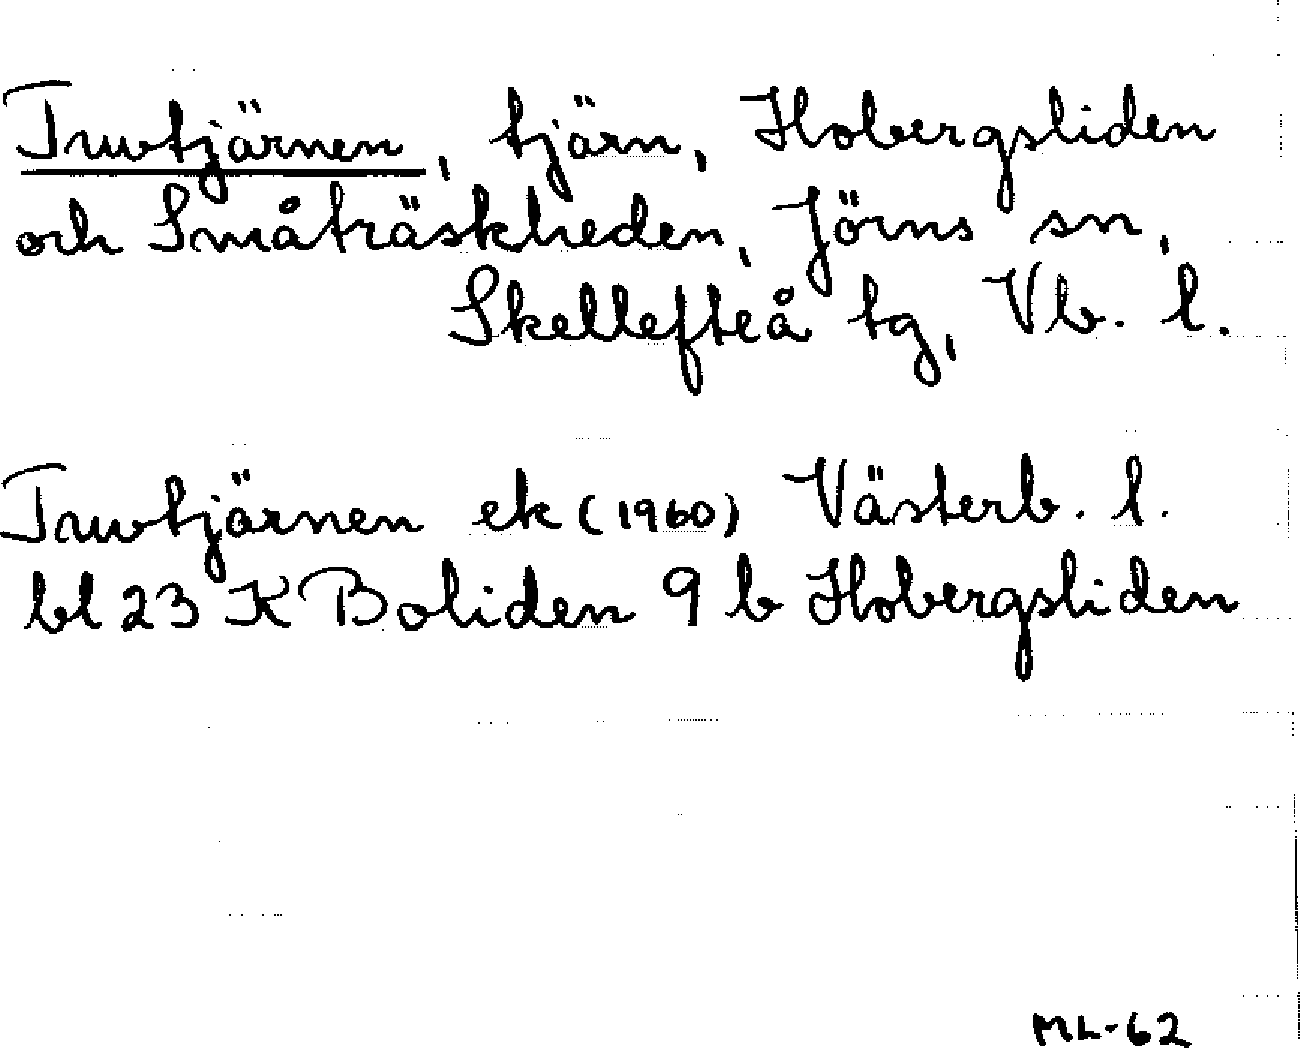 Tuvtjärnen, tjärn, Hobergsliden
och Småträskheden, Jörns sn,
Skellefteå tg, Vb. l.
Tuvtjärnen ek (1960) Västerb. l.
bl 23 K Boliden 9 b Hobergsliden
ML-62